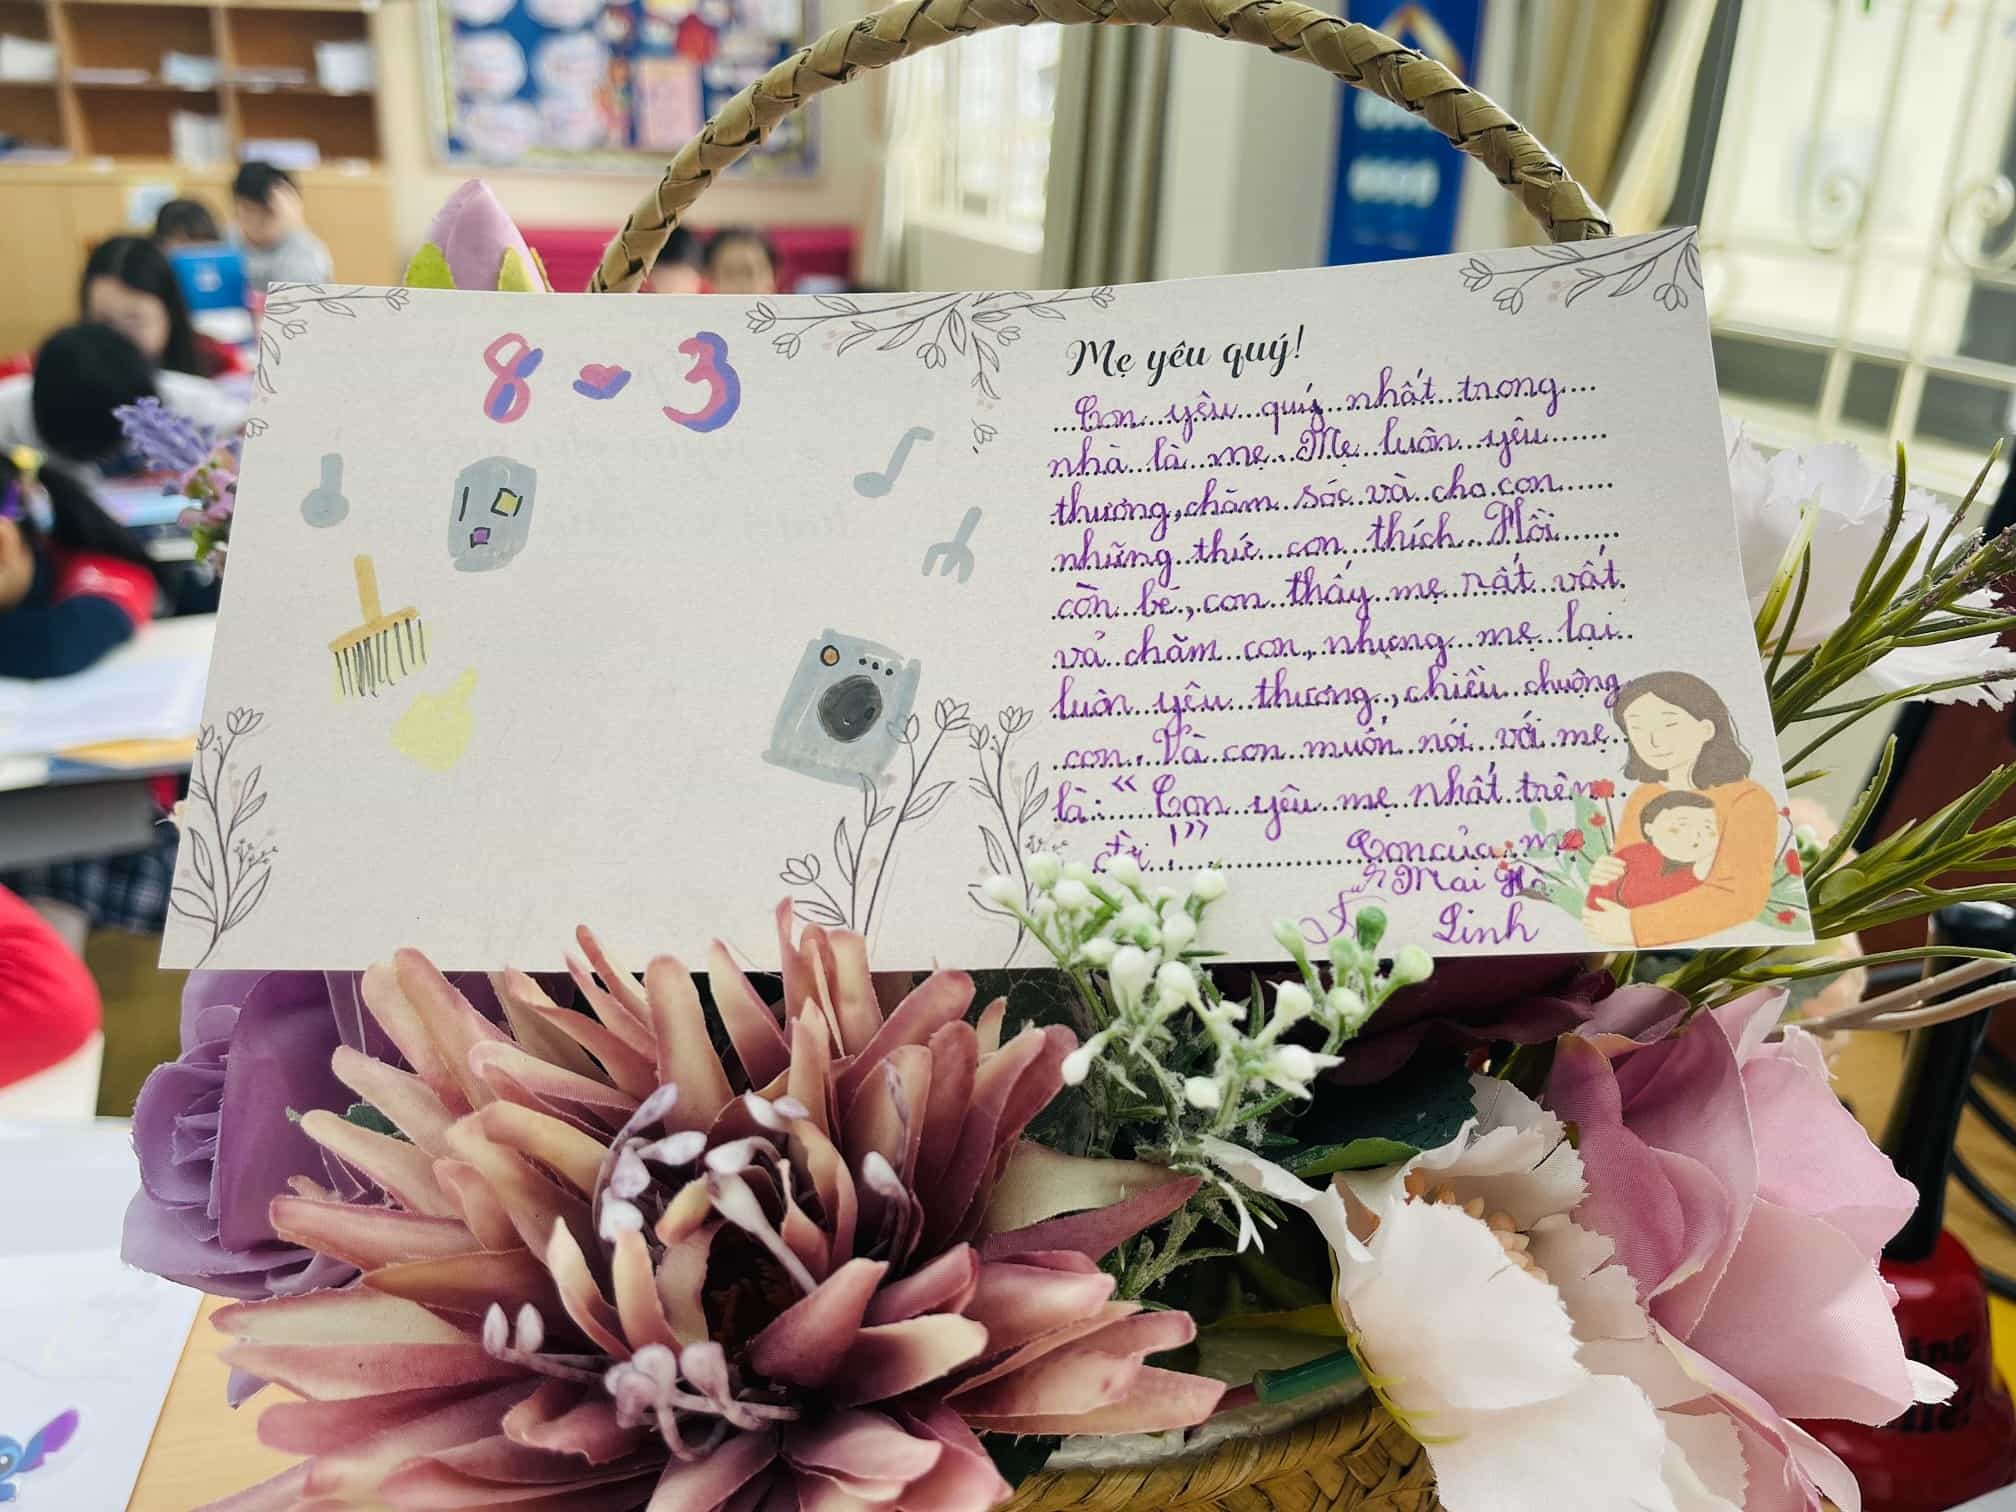 8 - 3
Mẹ yêu quý!
Con yêu quý nhất trong
nhà là mẹ. Mẹ luôn yêu
thương, chăm sóc và cho con
những thứ con thích. Hồi
còn bé, con thấy mẹ rất vất
vả chăm con, nhưng mẹ lại
luôn yêu thương, chiều chuộng
con. Và con muốn nói với mẹ
là: “Con yêu mẹ nhất trên
đời !”
Con của mẹ
Mai Hà
Linh